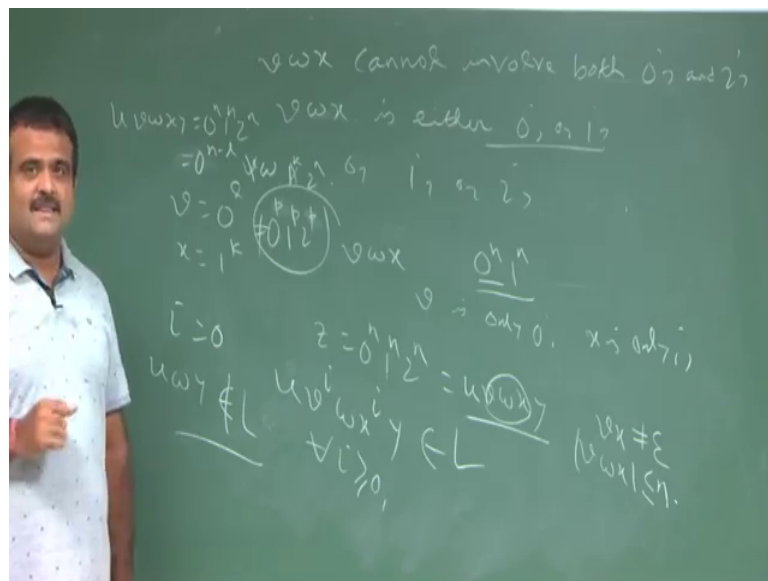 vwx cannot involve both 0's and 2's
uvwxy = 0ⁿ1ⁿ2ⁿ vwx is either 0's or 1's
or 1's or 2's
v = 0ˡ ≠ 0ᵖ1ᵖ2ᵖ
x = 1ᵏ vwx 0ⁿ1ⁿ
v is only 0's x is only 1's
i = 0 z = 0ⁿ1ⁿ2ⁿ = uvwxy
uwy ∉ L uvⁱwxⁱy ∈ L vx ≠ ε
∀ i ≥ 0, |vwx| ≤ n.